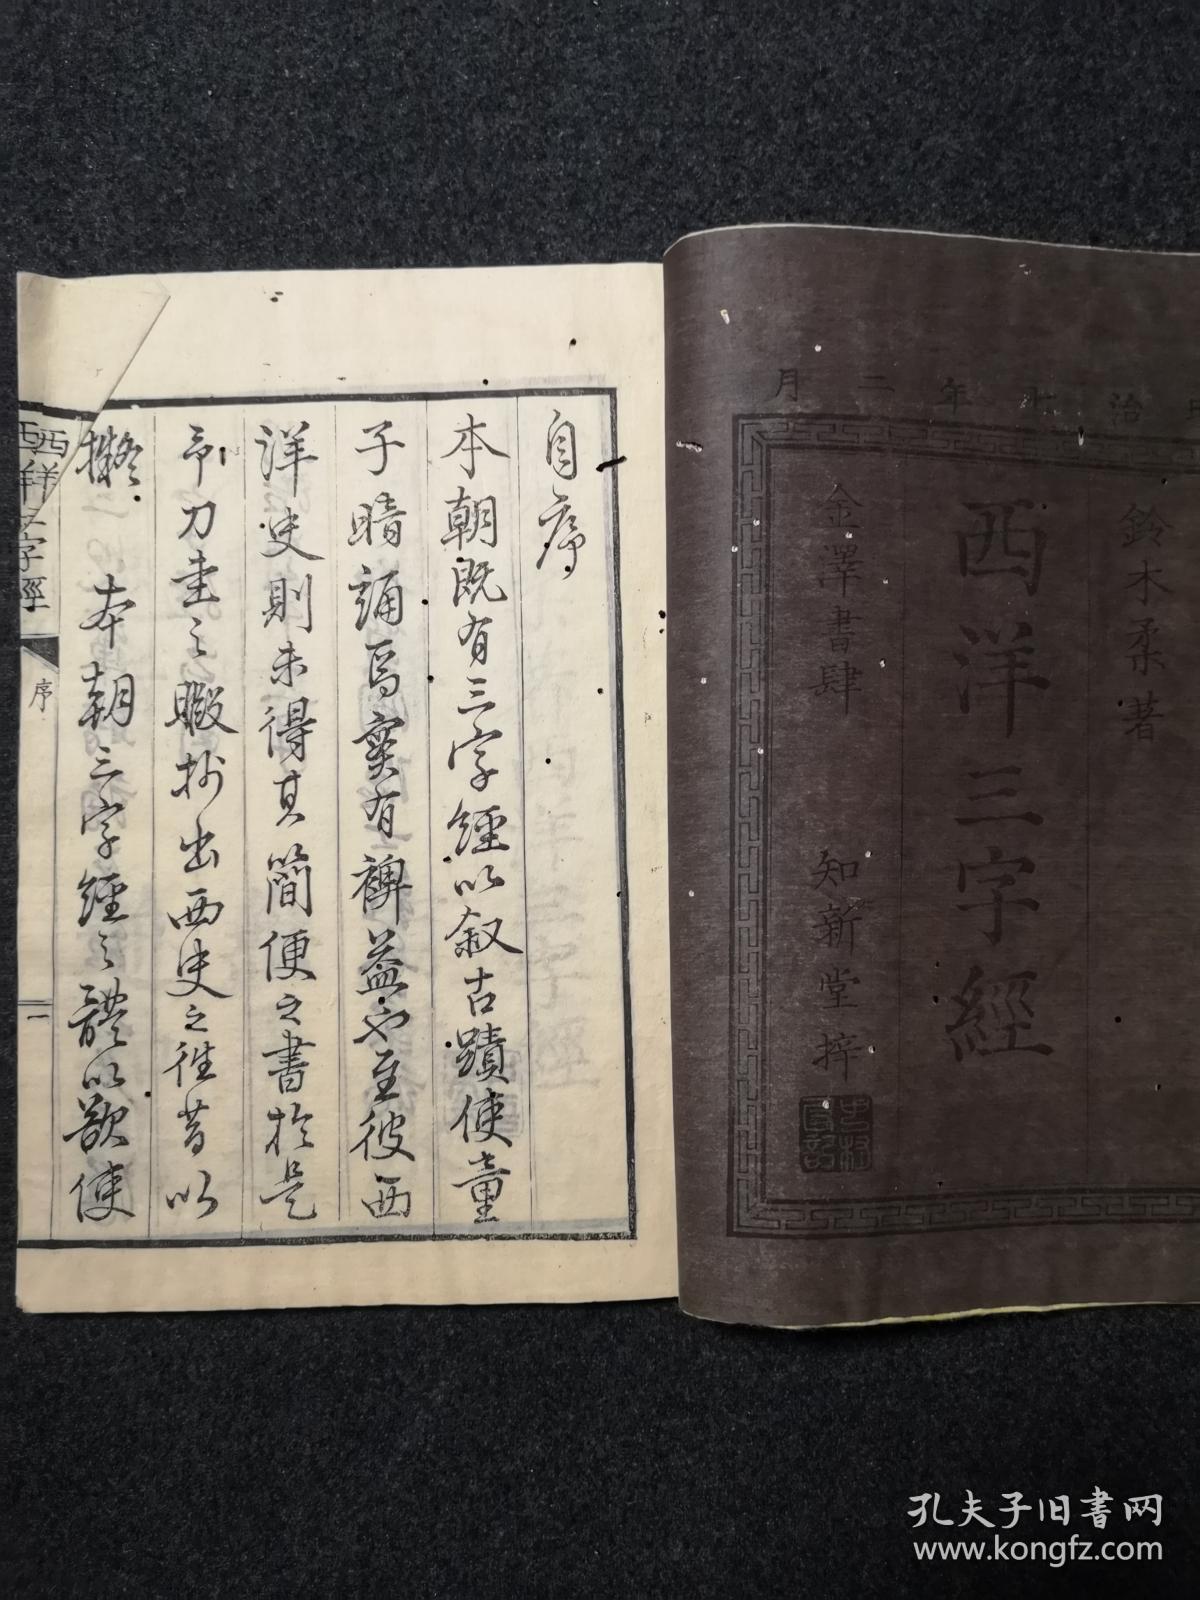 治七年二月
鈴木柔著
西洋三字經
金澤書肆 知新堂梓
自序
本朝既有三字經以叙古蹟使童
子暗誦焉寔有裨益也至彼西
洋史則未得其簡便之書於是
予刀圭之暇抄出西史之往昔以
擬 本朝三字經之體以欲使
西洋三字經
序
一
孔夫子旧书网
www.kongfz.com